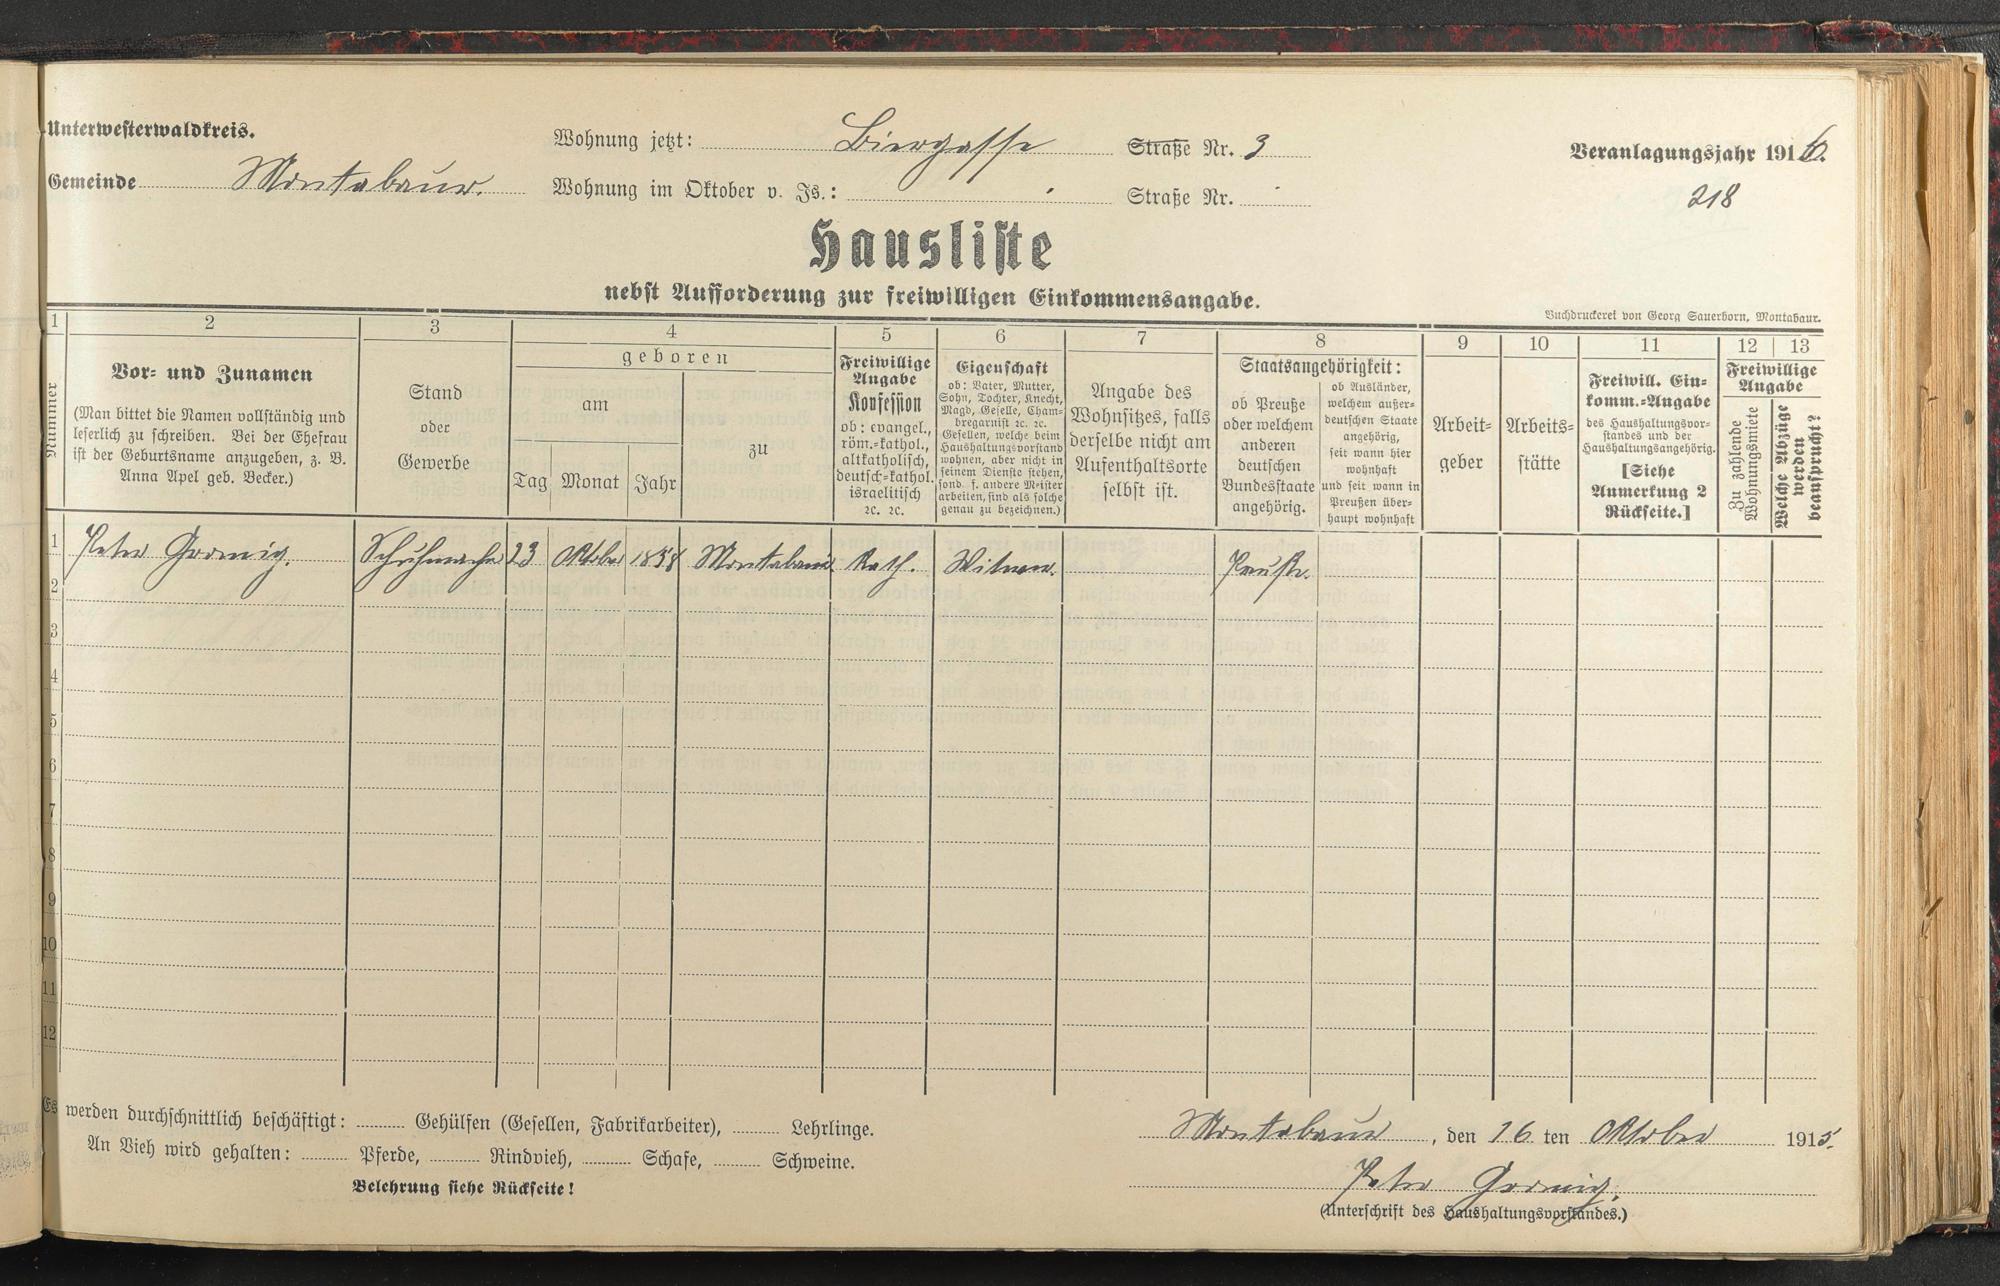 Unterwesterwaldkreis.
Gemeinde Montabaur.
Wohnung jetzt: Biergasse Straße Nr. 3
Wohnung im Oktober v. Js.: Straße Nr.
Veranlagungsjahr 1916.
218
Hausliste
nebst Aufforderung zur freiwilligen Einkommensangabe.
Buchdruckerei von Georg Sauerborn, Montabaur.
1 2 3 4 5 6 7 8 9 10 11 12 13
Nummer
Vor- und Zunamen
(Man bittet die Namen vollständig und
leserlich zu schreiben. Bei der Ehefrau
ist der Geburtsname anzugeben, z. B.
Anna Apel geb. Becker.)
Stand
oder
Gewerbe
geboren
am
Tag Monat Jahr
zu
Freiwillige
Angabe
Konfession
ob: evangel.,
röm.-kathol.,
altkatholisch,
deutsch-kathol.
israelitisch
2c. 2c.
Eigenschaft
ob: Vater, Mutter,
Sohn, Tochter, Knecht,
Magd, Geselle, Cham-
bregarnist 2c. 2c.
Gesellen, welche beim
Haushaltungsvorstand
wohnen, aber nicht in
seinem Dienste stehen,
sond. f. andere Meister
arbeiten, sind als solche
genau zu bezeichnen.)
Angabe des
Wohnsitzes, falls
derselbe nicht am
Aufenthaltsorte
selbst ist.
Staatsangehörigkeit:
ob Preuße
oder welchem
anderen
deutschen
Bundesstaate
angehörig.
ob Ausländer,
welchem außer-
deutschen Staate
angehörig,
seit wann hier
wohnhaft
und seit wann in
Preußen über-
haupt wohnhaft
Arbeit-
geber
Arbeits-
stätte
Freiwill. Ein-
komm.-Angabe
des Haushaltungsvor-
standes und der
Haushaltungsangehörig.
[Siehe
Anmerkung 2
Rückseite.]
Freiwillige
Angabe
Zu zahlende
Wohnungsmiete
Welche Abzüge
werden
beansprucht?
1 Peter 23 Oktober 1858 Montabaur. Kath. Witwer. Preuße.
2
3
4
5
6
7
8
9
10
11
12
Es werden durchschnittlich beschäftigt: Gehülfen (Gesellen, Fabrikarbeiter), Lehrlinge.
An Vieh wird gehalten: Pferde, Rindvieh, Schafe, Schweine.
Belehrung siehe Rückseite!
Montabaur, den 16 ten Oktober 1915.
Peter
(Unterschrift des Haushaltungsvorstandes.)